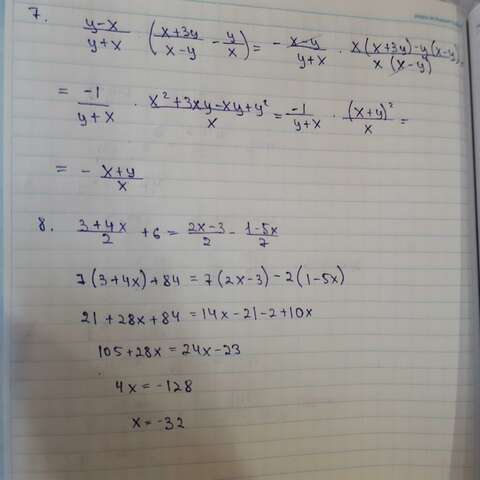 7. (y-x)/(y+x) ((x+3y)/(x-y) - y/x) = - (x-y)/(y+x) · (x(x+3y)-y(x-y))/(x(x-y)) =
= -1/(y+x) · (x²+3xy-xy+y²)/x = -1/(y+x) · (x+y)²/x =
= - (x+y)/x
8. (3+4x)/2 + 6 = (2x-3)/2 - (1-5x)/7
7(3+4x)+84 = 7(2x-3)-2(1-5x)
21+28x+84 = 14x-21-2+10x
105+28x = 24x-23
4x = -128
x = -32